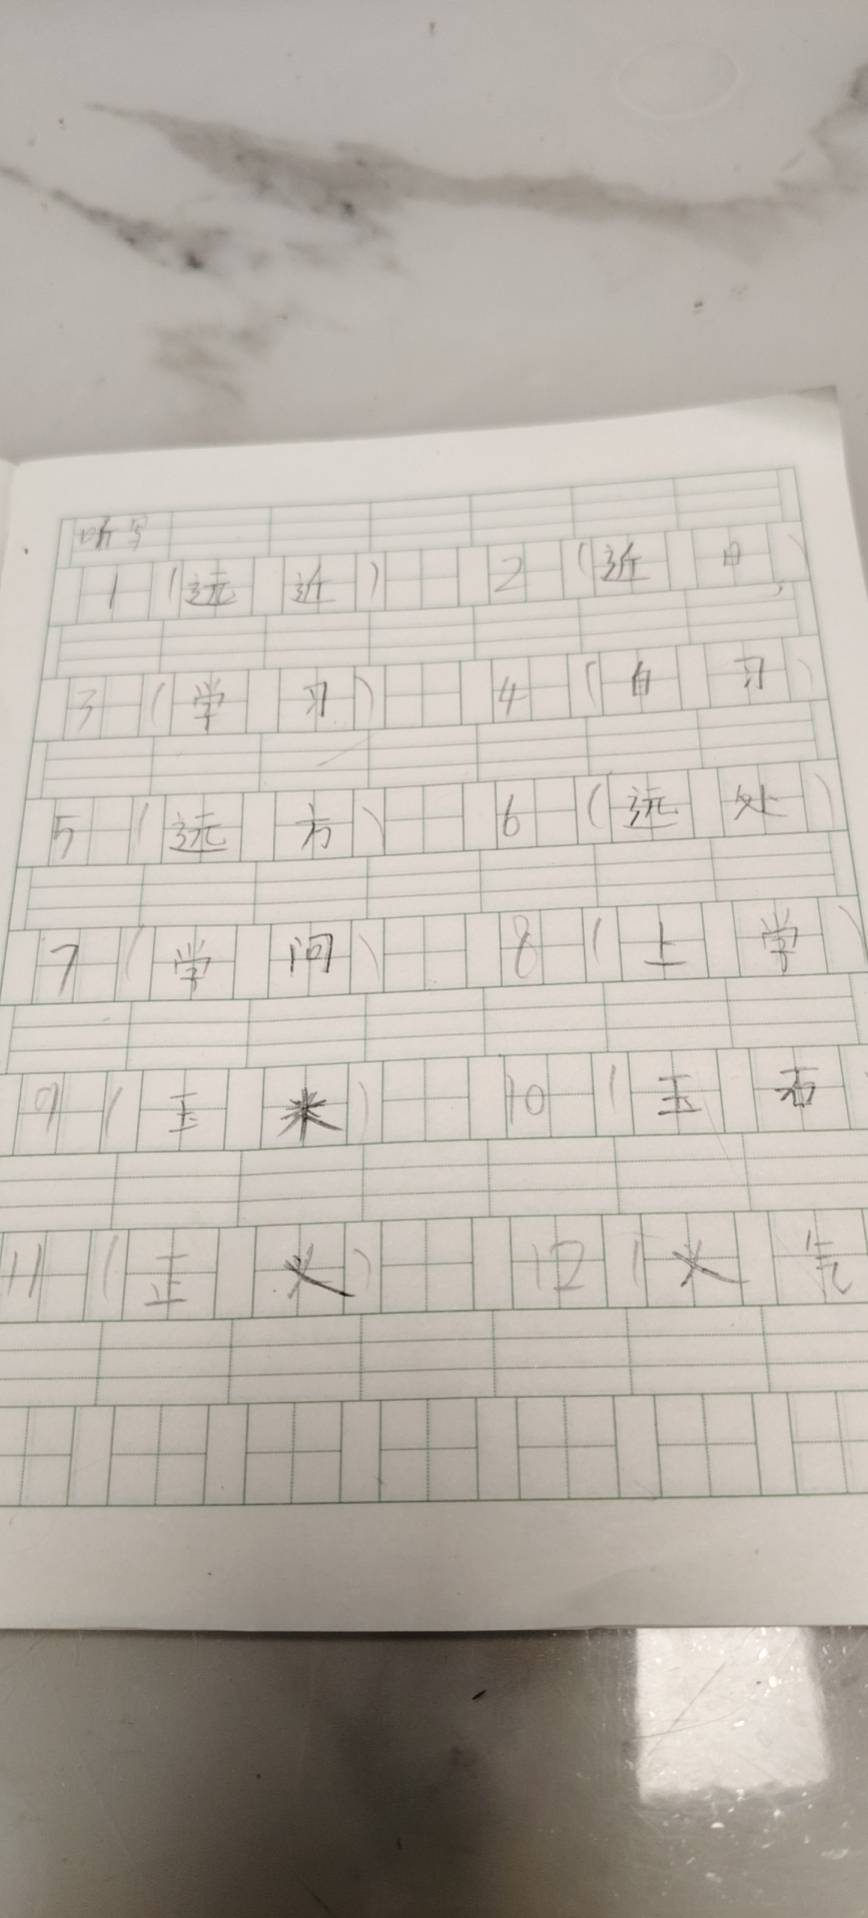 听写
1（远近） 2（近日）
3（学习） 4（自习）
5（远方） 6（远处）
7（学问） 8（上学）
9（玉米） 10（玉石
11（正义） 12（义气